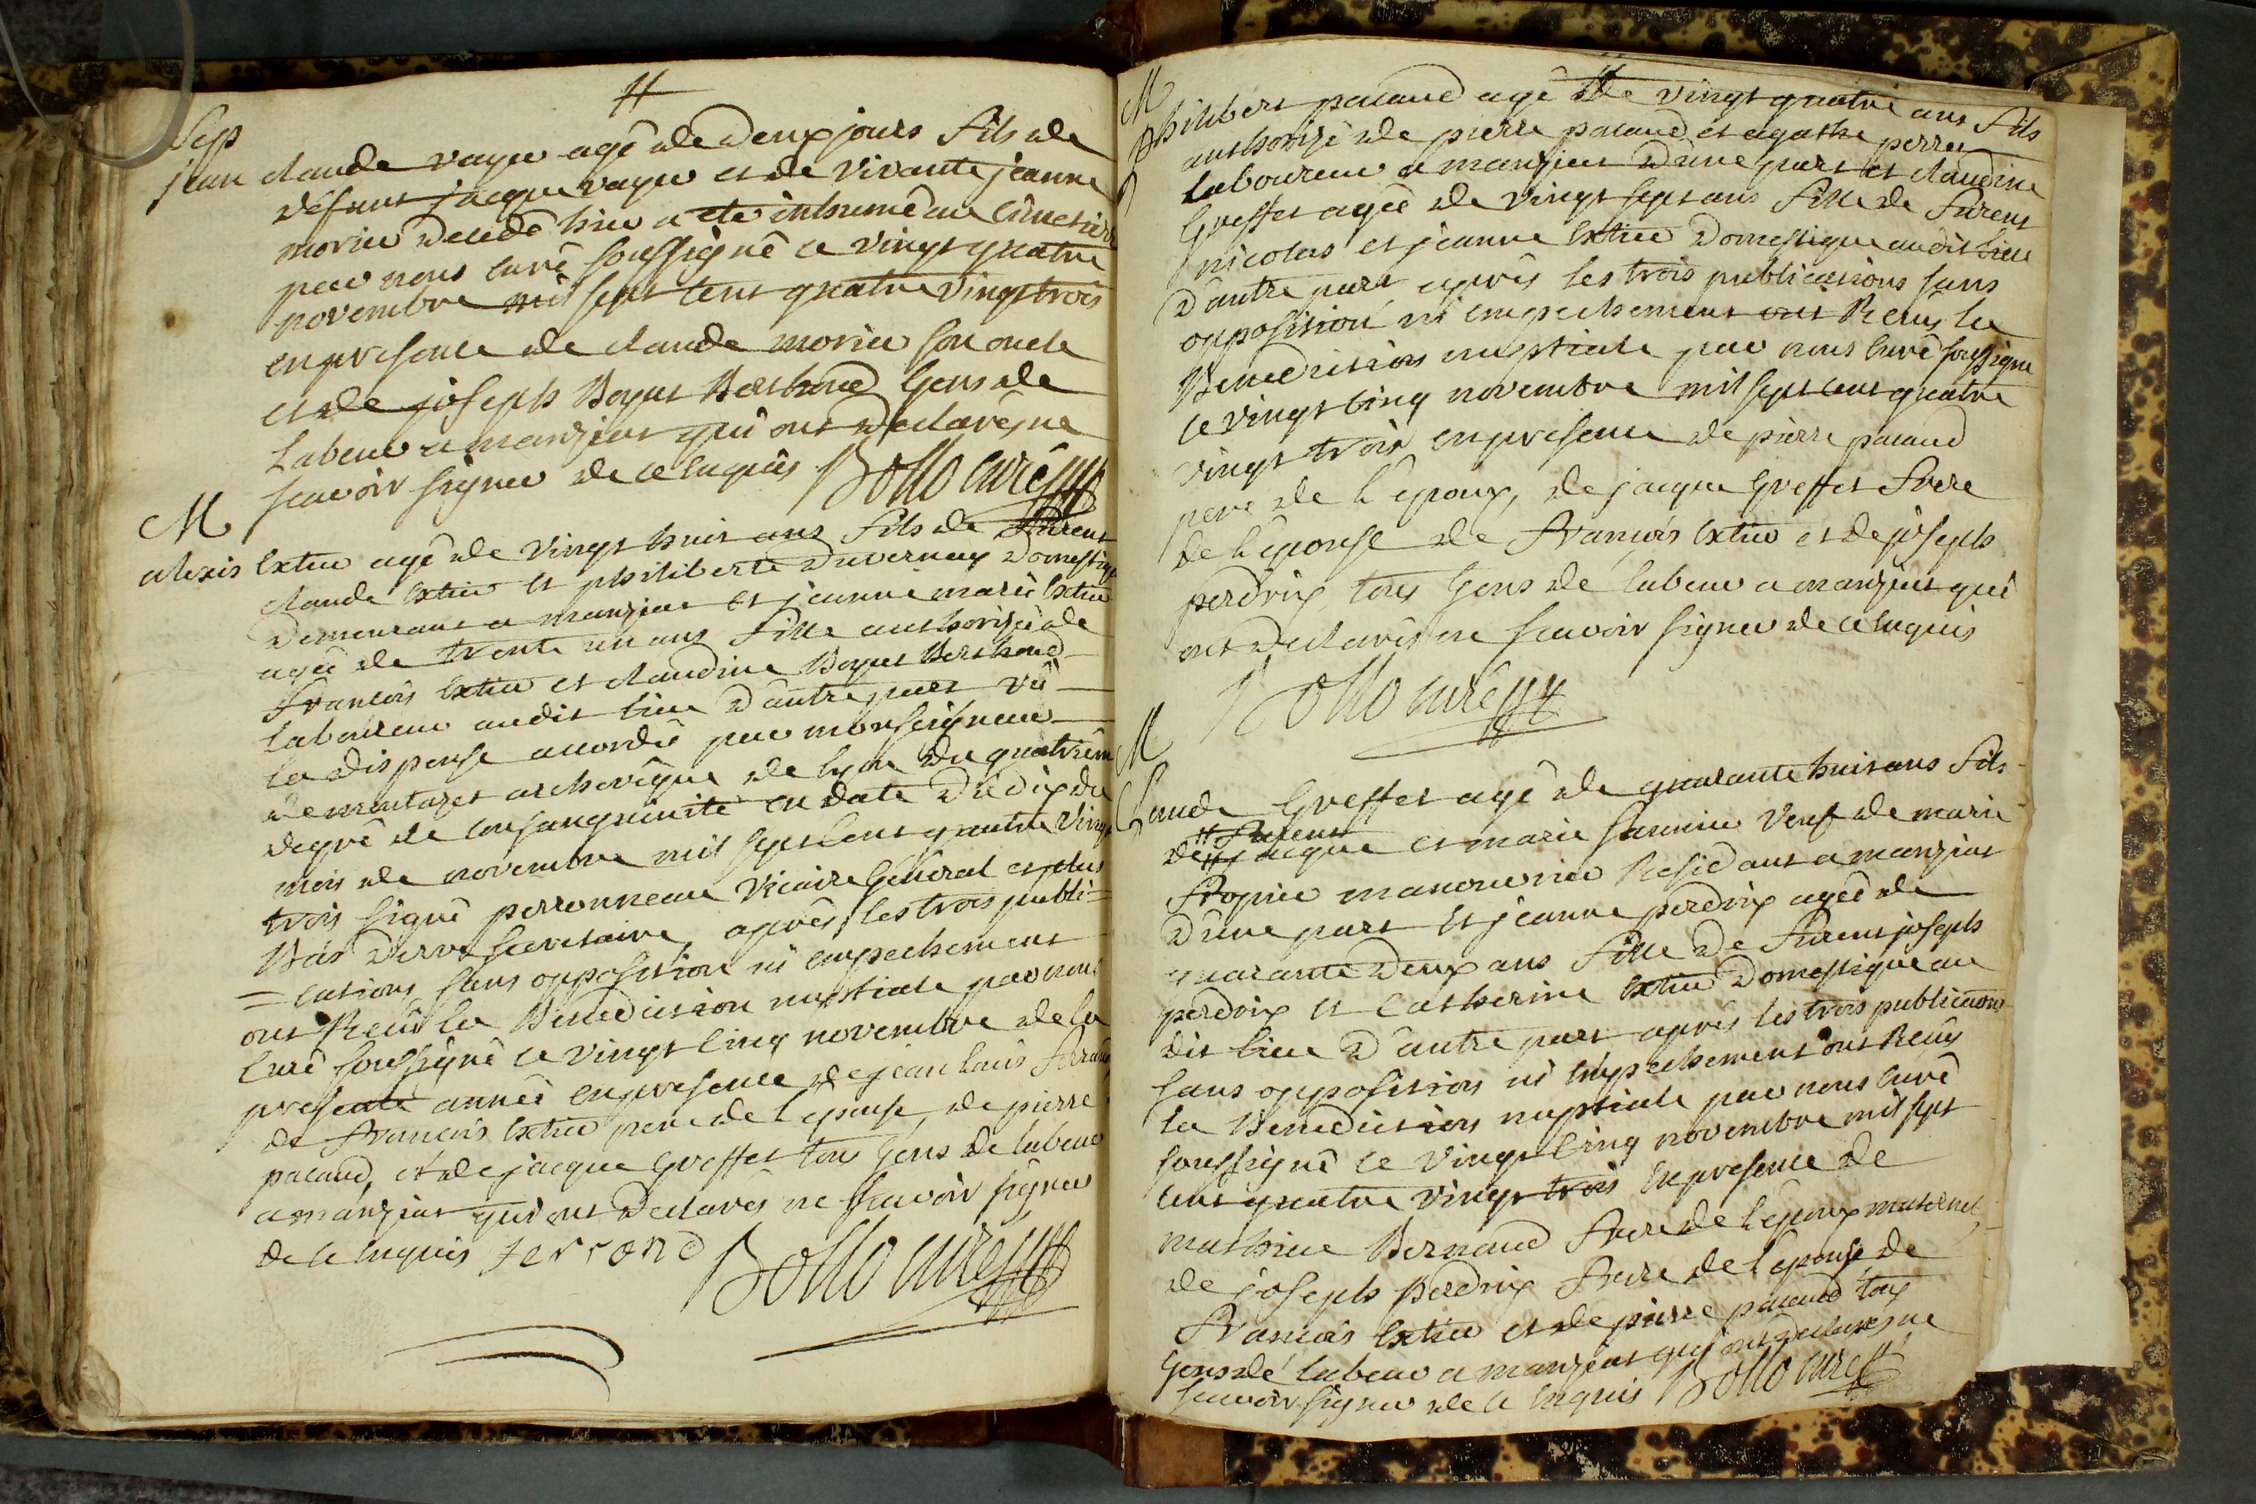 Sep
jean claude vayer agé de deux jours fils de
défunt jacque vayer et de vivante jeanne
morier decedé hier a eté inhumé au cimetiere
par nous curé soussigné ce vingt quatre
novembre mil sept cent quatre vingt trois
en presence de claude morier son oncle
et de joseph Boyat Berthoud gens de
labeur a manziat qui ont declarés ne
scavoir signer de ce enquis Bollo curé
M
alexis Extier agé de vingt huit ans fils de furent
claude Extier et philiberte duvernay domestique
demeurant a manziat et jeanne marie Extier
agée de trente un ans fille authorisée de
francois Extier et claudine Boyat Berthoud
laboureur audit lieu d'autre part vû
la dispense accordée par monseigneur
de montazet archevêque de lyon du quatrième
degré de consanguinité en date du dix du
mois de novembre mil sept cent quatre vingt
trois signé perronneau vicaire général et plus
bas secretaire, après les trois publi=
=cations sans opposition ni empechement
ont Recû la Benediction nuptiale par nous
curé soussigné ce vingt cinq novembre de la
presente année en presence de jean louis
de francois Extier pere de l'epouse, de pierre
pacaud, et de jacque Greffet tous gens de labeur
a manziat qui ont declarés ne scavoir signer
de ce enquis ferrand Bollo curé
M
philibert pacaud agé de vingt quatre ans fils
authorisé de pierre pacaud et agathe perret
laboureur a manziat d'une part et claudine
Greffet agée de vingt sept ans fille de furent
nicolas et jeanne Extier domestique audit lieu
d'autre part après les trois publications sans
opposition ni empechement ont Recus la
Benediction nuptiale par nous curé soussigné
ce vingt cinq novembre mil sept cent quatre
vingt trois en presence de pierre pacaud
pere de l'epoux, de jacque Greffet frere
de l'epouse de francois Extier et de joseph
perdrix tous gens de labeur a manziat qui
ont declarés ne scavoir signer de ce enquis
Bollo curé
M
Claude Greffet agé de quarante huit ans fils
de # jacque et marie veuf de marie
# furent
manouvrier Residant a manziat
d'une part et jeanne perdrix agée de
quarante deux ans fille de furent joseph
perdrix et catherine Extier domestique au
dit lieu d'autre part après les trois publications
sans opposition ni empechement ont Recus
la Benediction nuptiale par nous curé
soussigné ce vingt cinq novembre mil sept
cent quatre vingt trois en presence de
mathieu Bernaud frere de l'epoux maternel,
de joseph perdrix frere de l'epouse de
francois Extier et de pierre pacaud tous
gens de labeur a manziat qui ont declarés ne
scavoir signer de ce enquis Bollo curé